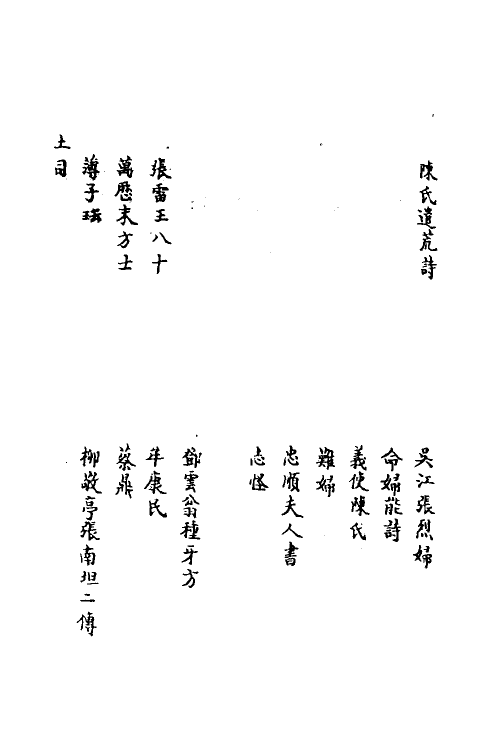 陳氏遺荒詩
吳江張烈婦
命婦能詩
義使陳氏
難婦
忠順夫人書
志怪
鄧雲翁種牙方
張雷王八十
年康氏
萬歷末方士
蔡鼎
薄子珏
柳敬亭張南垣二傳
土司